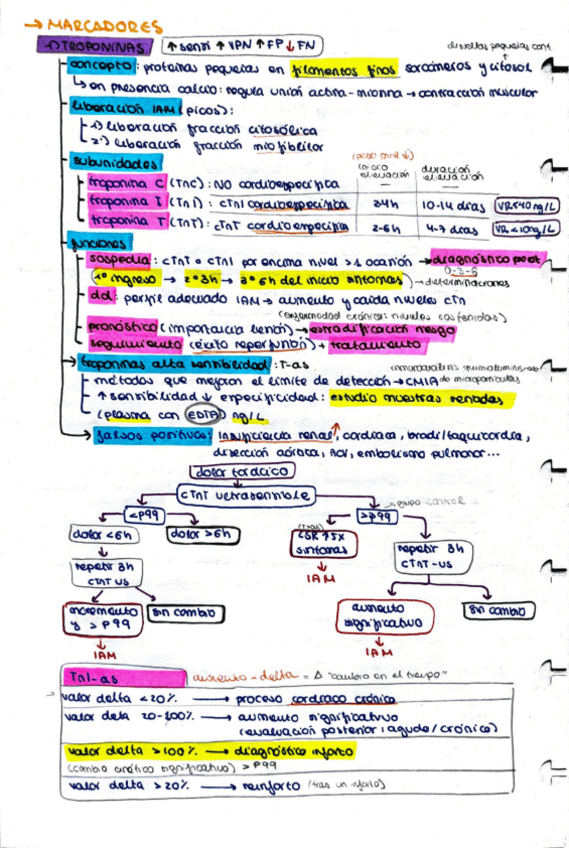 → MARCADORES
→ TROPONINAS ↑sensi ↑VPN ↑FP ↓FN
concepto: proteínas pequeñas en filamentos finos sarcómeros y citosol
↳ en presencia calcio: regula unión actina-miosina → contracción muscular
liberación IAM (picos):
1) liberación fracción citosólica
2) liberación fracción miofibrilar
subunidades
inicio elevación duración elevación
troponina C (TnC): NO cardioespecífica — —
troponina I (TnI): cTnI cardioespecífica 10-14 días VR<40 ng/L
troponina T (TnT): cTnT cardioespecífica 2-6h 4-7 días VR<10ng/L
funciones
sospecha: cTnT o cTnI por encima nivel >1 ocasión → diagnóstico
0-3-6
1º ingreso → 2º 3h → 3º 6h del inicio síntomas → determinaciones
dd: perfil adecuado IAM → aumento y caída niveles cTn
(enfermedad crónica: niveles sostenidos)
pronóstico (importancia lesión) → estratificación riesgo
seguimiento (éxito reperfusión) → tratamiento
troponinas alta sensibilidad: T-as
métodos que mejoran el límite de detección → CMIA de micropartículas
↑ sensibilidad ↓ especificidad: estudio muestras seriadas
(plasma con EDTA) ng/L
falsos positivos: insuficiencia renal, cardíaca, bradi/taquicardia,
disección aórtica, ACV, embolismo pulmonar...
dolor torácico
cTnT ultrasensible
<P99 >P99
dolor <6h dolor >6h síntomas IAM repetir 3h cTnT-us
repetir 3h cTnT us
incremento y >P99 sin cambio aumento significativo sin cambio
IAM IAM
TnI-as aumento-delta = Δ "cambio en el tiempo"
valor delta <20% → proceso cardíaco crónico
valor delta 20-100% → aumento significativo
(evaluación posterior: agudo/crónico)
valor delta >100% → diagnóstico infarto
(cambio cinético significativo) > P99
valor delta >20% → reinfarto (tras un infarto)